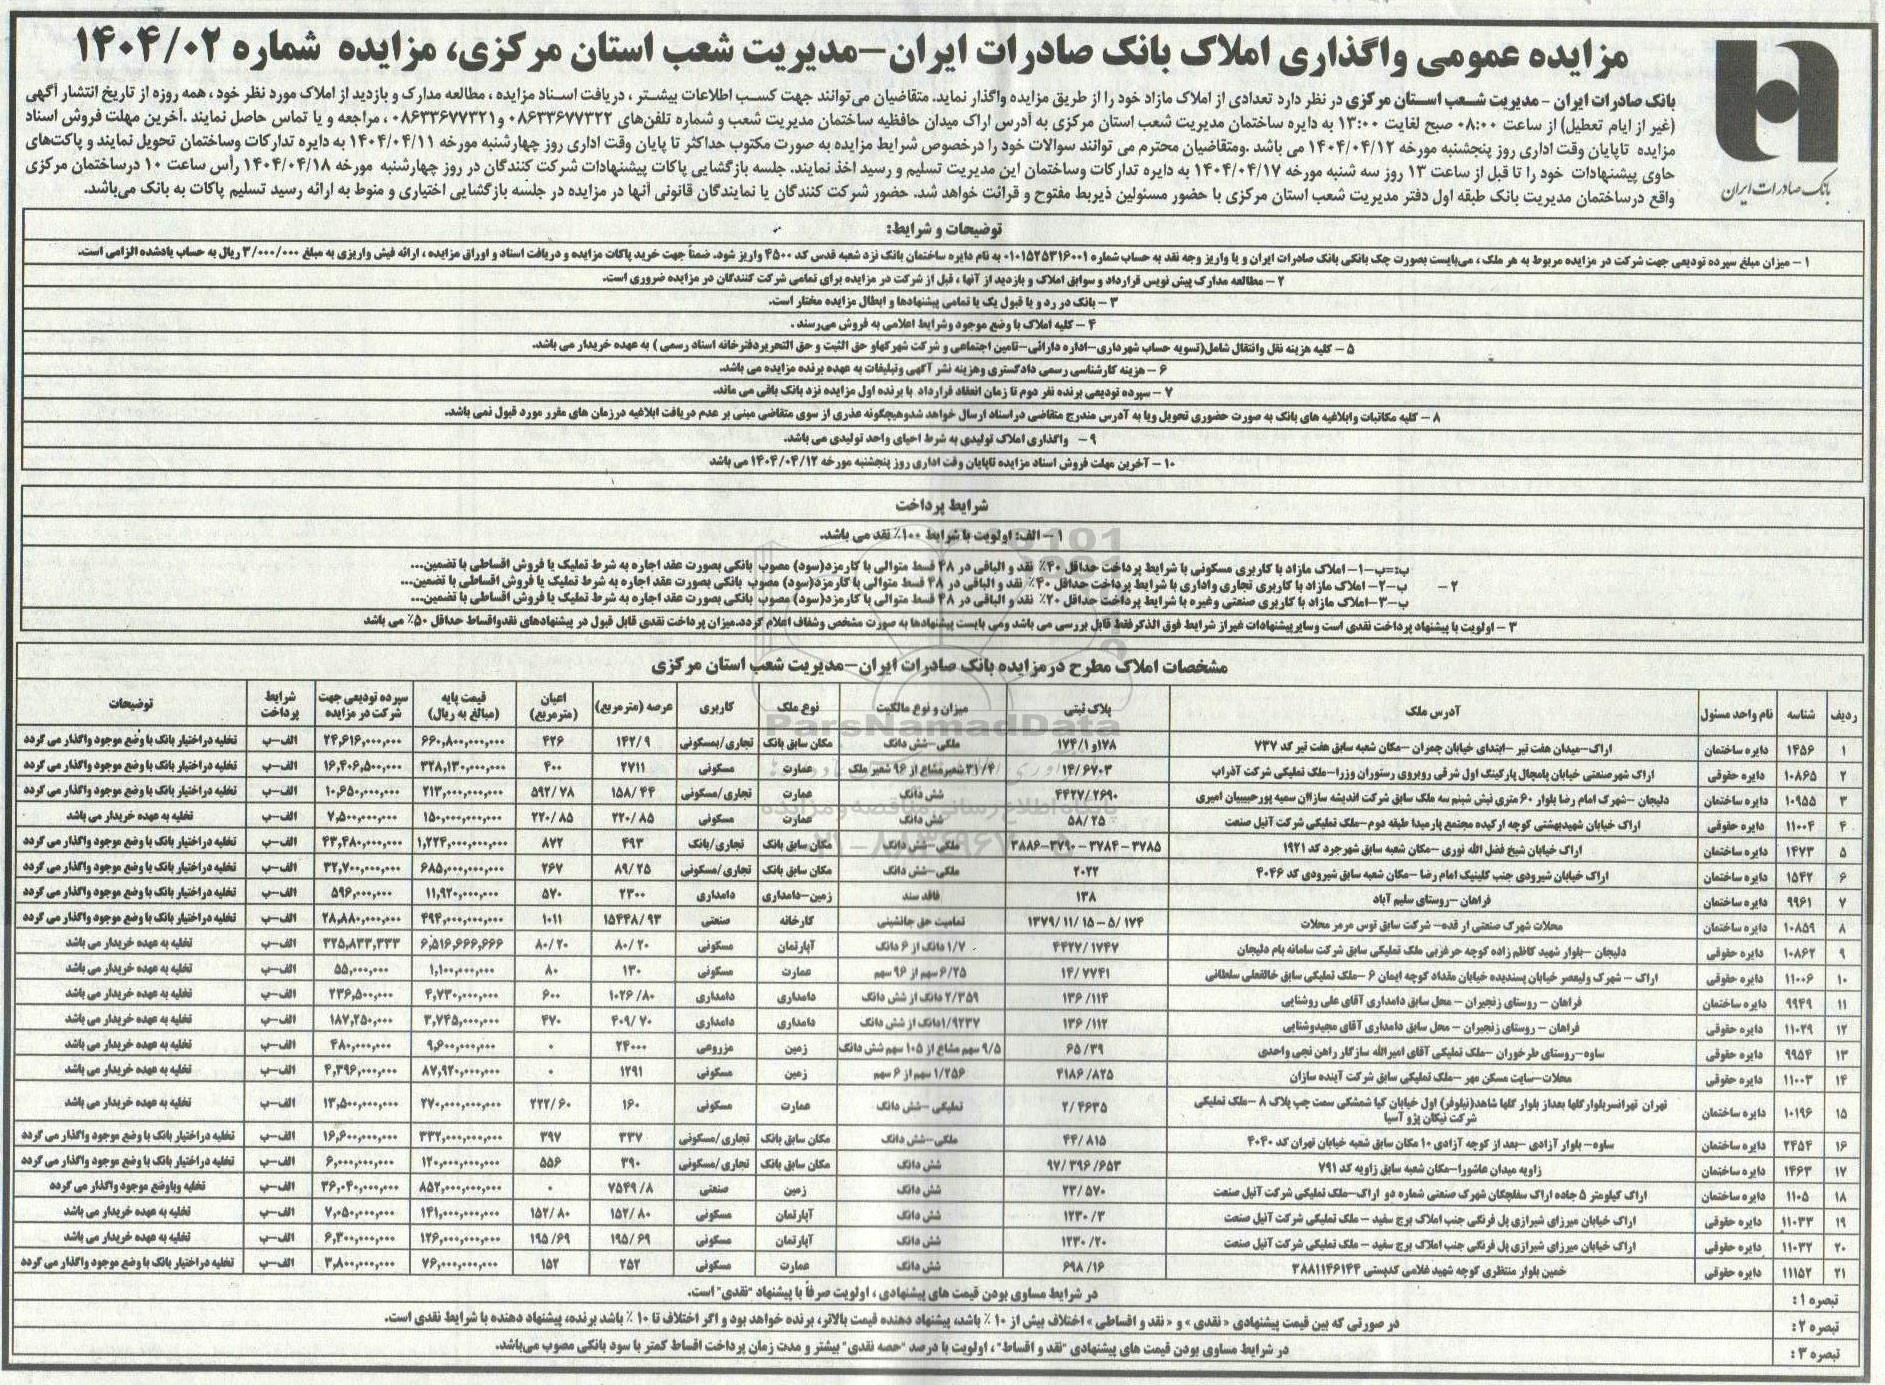 مزایده عمومی واگذاری املاک بانک صادرات ایران-مدیریت شعب استان مرکزی، مزایده شماره ۱۴۰۴/۰۲
بانک صادرات ایران
بانک صادرات ایران - مدیریت شعب استان مرکزی در نظر دارد تعدادی از املاک مازاد خود را از طریق مزایده واگذار نماید. متقاضیان می‌توانند جهت کسب اطلاعات بیشتر ، دریافت اسناد مزایده ، مطالعه مدارک و بازدید از املاک مورد نظر خود ، همه روزه از تاریخ انتشار آگهی
(غیر از ایام تعطیل) از ساعت ۰۸:۰۰ صبح لغایت ۱۳:۰۰ به دایره ساختمان مدیریت شعب استان مرکزی به آدرس اراک میدان حافظیه ساختمان مدیریت شعب و شماره تلفن‌های ۰۸۶۳۳۶۷۷۳۲۲ و۰۸۶۳۳۶۷۷۳۲۱ ، مراجعه و یا تماس حاصل نمایند .آخرین مهلت فروش اسناد
مزایده تاپایان وقت اداری روز پنجشنبه مورخه ۱۴۰۴/۰۴/۱۲ می باشد .ومتقاضیان محترم می توانند سوالات خود را درخصوص شرایط مزایده به صورت مکتوب حداکثر تا پایان وقت اداری روز چهارشنبه مورخه ۱۴۰۴/۰۴/۱۱ به دایره تدارکات وساختمان تحویل نمایند و پاکت‌های
حاوی پیشنهادات خود را تا قبل از ساعت ۱۳ روز سه شنبه مورخه ۱۴۰۴/۰۴/۱۷ به دایره تدارکات وساختمان این مدیریت تسلیم و رسید اخذ نمایند. جلسه بازگشایی پاکات پیشنهادات شرکت کنندگان در روز چهارشنبه مورخه ۱۴۰۴/۰۴/۱۸ رأس ساعت ۱۰ درساختمان مرکزی
واقع درساختمان مدیریت بانک طبقه اول دفتر مدیریت شعب استان مرکزی با حضور مسئولین ذیربط مفتوح و قرائت خواهد شد. حضور شرکت کنندگان یا نمایندگان قانونی آنها در مزایده در جلسه بازگشایی اختیاری و منوط به ارائه رسید تسلیم پاکات به بانک می‌باشد.
توضیحات و شرایط:
۱ - میزان مبلغ سپرده تودیعی جهت شرکت در مزایده مربوط به هر ملک ، می‌بایست بصورت چک بانکی بانک صادرات ایران و یا واریز وجه نقد به حساب شماره ۰۱۰۱۵۲۵۳۱۶۰۰۱ به نام دایره ساختمان بانک نزد شعبه قدس کد ۴۵۰۰ واریز شود. ضمناً جهت خرید پاکات مزایده و دریافت اسناد و اوراق مزایده ، ارائه فیش واریزی به مبلغ ۳/۰۰۰/۰۰۰ ریال به حساب یادشده الزامی است.
۲ - مطالعه مدارک پیش نویس قرارداد و سوابق املاک و بازدید از آنها ، قبل از شرکت در مزایده برای تمامی شرکت کنندگان در مزایده ضروری است.
۳ - بانک در رد و یا قبول یک یا تمامی پیشنهادها و ابطال مزایده مختار است.
۴ - کلیه املاک با وضع موجود وشرایط اعلامی به فروش می‌رسند .
۵ - کلیه هزینه نقل وانتقال شامل(تسویه حساب شهرداری-اداره دارائی-تامین اجتماعی و شرکت شهرکهاو حق الثبت و حق التحریردفترخانه اسناد رسمی ) به عهده خریدار می باشد.
۶ - هزینه کارشناسی رسمی دادگستری وهزینه نشر آگهی وتبلیغات به عهده برنده مزایده می باشد.
۷ - سپرده تودیعی برنده نفر دوم تا زمان انعقاد قرارداد با برنده اول مزایده نزد بانک باقی می ماند.
۸ - کلیه مکاتبات وابلاغیه های بانک به صورت حضوری تحویل ویا به آدرس مندرج متقاضی دراسناد ارسال خواهد شدوهیچگونه عذری از سوی متقاضی مبنی بر عدم دریافت ابلاغیه درزمان های مقرر مورد قبول نمی باشد.
۹ - واگذاری املاک تولیدی به شرط احیای واحد تولیدی می باشد.
۱۰ - آخرین مهلت فروش اسناد مزایده تاپایان وقت اداری روز پنجشنبه مورخه ۱۴۰۴/۰۴/۱۲ می باشد
شرایط پرداخت
۱ - الف: اولویت با شرایط ۱۰۰٪ نقد می باشد.
ب:=ب-۱- املاک مازاد با کاربری مسکونی با شرایط پرداخت حداقل ۴۰٪ نقد و الباقی در ۴۸ قسط متوالی با کارمزد(سود) مصوب بانکی بصورت عقد اجاره به شرط تملیک یا فروش اقساطی با تضمین...
۲ - ب-۲- املاک مازاد با کاربری تجاری واداری با شرایط پرداخت حداقل ۴۰٪ نقد و الباقی در ۴۸ قسط متوالی با کارمزد(سود) مصوب بانکی بصورت عقد اجاره به شرط تملیک یا فروش اقساطی با تضمین...
ب-۳-املاک مازاد با کاربری صنعتی وغیره با شرایط پرداخت حداقل ۲۰٪ نقد و الباقی در ۴۸ قسط متوالی با کارمزد(سود) مصوب بانکی بصورت عقد اجاره به شرط تملیک یا فروش اقساطی با تضمین...
۳ - اولویت با پیشنهاد پرداخت نقدی است وسایرپیشنهادات غیراز شرایط فوق الذکرفقط قابل بررسی می باشد ومی بایست پیشنهادها به صورت مشخص وشفاف اعلام گردد.میزان پرداخت نقدی قابل قبول در پیشنهادهای نقدواقساط حداقل ۵۰٪ می باشد
مشخصات املاک مطرح درمزایده بانک صادرات ایران-مدیریت شعب استان مرکزی
ردیف شناسه نام واحد مسئول آدرس ملک پلاک ثبتی میزان و نوع مالکیت نوع ملک کاربری عرصه (مترمربع) اعیان (مترمربع) قیمت پایه (مبالغ به ریال) سپرده تودیعی جهت شرکت در مزایده شرایط پرداخت توضیحات
۱ ۱۴۵۶ دایره ساختمان اراک-میدان هفت تیر -ابتدای خیابان چمران -مکان شعبه سابق هفت تیر کد ۷۳۷ ۱۷۸و ۱۷۴/۱ ملکی-شش دانگ مکان سابق بانک تجاری/مسکونی ۱۴۲/۹ ۴۲۶ ۶۶۰,۸۰۰,۰۰۰,۰۰۰ ۲۴,۶۱۶,۰۰۰,۰۰۰ الف-ب تخلیه دراختیار بانک با وضع موجود واگذار می گردد
۲ ۱۰۸۶۵ دایره حقوقی اراک شهرصنعتی خیابان پامچال پارکینگ اول شرقی روبروی رستوران وزرا-ملک تملیکی شرکت آذراب ۱۴/۶۷۰۳ ۳۱/۴ شعیرمشاع از ۹۶ شعیر ملک عمارت مسکونی ۲۷۱۱ ۴۰۰ ۳۲۸,۱۳۰,۰۰۰,۰۰۰ ۱۶,۴۰۶,۵۰۰,۰۰۰ الف-ب تخلیه دراختیار بانک با وضع موجود واگذار می گردد
۳ ۱۰۹۵۵ دایره ساختمان دلیجان -شهرک امام رضا بلوار ۶۰ متری نبش شبنم سه ملک سابق شرکت اندیشه سازان سمیه پورحبیبیان امیری ۴۴۲۷/۲۶۹۰ شش دانگ عمارت تجاری/مسکونی ۱۵۸/۴۴ ۵۹۲/۷۸ ۲۱۳,۰۰۰,۰۰۰,۰۰۰ ۱۰,۶۵۰,۰۰۰,۰۰۰ الف-ب تخلیه دراختیار بانک با وضع موجود واگذار می گردد
۴ ۱۱۰۰۴ دایره حقوقی اراک خیابان شهیدبهشتی کوچه ارکیده مجتمع پارمیدا طبقه دوم-ملک تملیکی شرکت آنیل صنعت ۵۸/۲۵ شش دانگ عمارت مسکونی ۲۲۰/۸۵ ۲۲۰/۸۵ ۱۵۰,۰۰۰,۰۰۰,۰۰۰ ۷,۵۰۰,۰۰۰,۰۰۰ الف-ب تخلیه به عهده خریدار می باشد
۵ ۱۴۷۳ دایره ساختمان اراک خیابان شیخ فضل الله نوری -مکان شعبه سابق شهرجرد کد ۱۹۲۱ ۳۷۸۵-۳۷۸۴-۳۷۹۰-۳۸۸۶ ملکی-شش دانگ مکان سابق بانک تجاری/بانک ۴۹۳ ۸۷۲ ۱,۲۲۴,۰۰۰,۰۰۰,۰۰۰ ۴۳,۴۸۰,۰۰۰,۰۰۰ الف-ب تخلیه دراختیار بانک با وضع موجود واگذار می گردد
۶ ۱۵۴۲ دایره ساختمان اراک خیابان شیرودی جنب کلینیک امام رضا -مکان شعبه سابق شیرودی کد ۴۰۴۶ ۲۰۲۲ ملکی-شش دانگ مکان سابق بانک تجاری/مسکونی ۸۹/۲۵ ۲۶۷ ۶۸۵,۰۰۰,۰۰۰,۰۰۰ ۳۲,۷۰۰,۰۰۰,۰۰۰ الف-ب تخلیه دراختیار بانک با وضع موجود واگذار می گردد
۷ ۹۹۶۱ دایره ساختمان فراهان -روستای سلیم آباد ۱۳۸ فاقد سند زمین-دامداری دامداری ۲۳۰۰ ۵۷۰ ۱۱,۹۲۰,۰۰۰,۰۰۰ ۵۹۶,۰۰۰,۰۰۰ الف-ب تخلیه دراختیار بانک با وضع موجود واگذار می گردد
۸ ۱۰۸۵۹ دایره ساختمان محلات شهرک صنعتی ارقده- شرکت سابق توس مرمر محلات ۵/۱۷۴ - ۱۳۷۹/۱۱/۱۵ تمامیت حق جانشینی کارخانه صنعتی ۱۵۴۴۸/۹۳ ۱۰۱۱ ۴۹۴,۰۰۰,۰۰۰,۰۰۰ ۲۸,۸۸۰,۰۰۰,۰۰۰ الف-ب تخلیه دراختیار بانک با وضع موجود واگذار می گردد
۹ ۱۰۸۶۲ دایره حقوقی دلیجان -بلوار شهید کاظم زاده کوچه حرغزبی ملک تملیکی سابق شرکت سامانه بام دلیجان ۴۴۲۷/۱۷۴۷ ۱/۷ دانگ از ۶ دانگ آپارتمان مسکونی ۸۰/۲۰ ۸۰/۲۰ ۶,۵۱۶,۶۶۶,۶۶۶ ۳۲۵,۸۳۳,۳۳۳ الف-ب تخلیه به عهده خریدار می باشد
۱۰ ۱۱۰۰۶ دایره حقوقی اراک - شهرک ولیعصر خیابان پسندیده خیابان مقداد کوچه ایمان ۶ -ملک تملیکی سابق خالقعلی سلطانی ۱۴/۷۷۴۱ ۶/۲۵ سهم از ۹۶ سهم عمارت مسکونی ۱۳۰ ۸۰ ۱,۱۰۰,۰۰۰,۰۰۰ ۵۵,۰۰۰,۰۰۰ الف-ب تخلیه به عهده خریدار می باشد
۱۱ ۹۹۴۹ دایره ساختمان فراهان - روستای زنجیران - محل سابق دامداری آقای علی روشنایی ۱۳۶/۱۱۴ ۲/۳۵۹ دانگ از شش دانگ دامداری دامداری ۱۰۲۶/۸۰ ۶۰۰ ۴,۷۳۰,۰۰۰,۰۰۰ ۲۳۶,۵۰۰,۰۰۰ الف-ب تخلیه به عهده خریدار می باشد
۱۲ ۱۱۰۲۹ دایره حقوقی فراهان - روستای زنجیران - محل سابق دامداری آقای مجیدوشنایی ۱۳۶/۱۱۲ ۱/۹۲۳۷دانگ از شش دانگ دامداری دامداری ۴۰۹/۷۰ ۴۷۰ ۳,۷۴۵,۰۰۰,۰۰۰ ۱۸۷,۲۵۰,۰۰۰ الف-ب تخلیه به عهده خریدار می باشد
۱۳ ۹۹۵۴ دایره حقوقی ساوه-روستای طرخوران -ملک تملیکی آقای امیرالله سازگار راهن نجی واحدی ۶۵/۳۹ ۹/۵ سهم مشاع از ۱۰۵ سهم شش دانگ زمین مزروعی ۲۴۰۰۰ ۰ ۹,۶۰۰,۰۰۰,۰۰۰ ۴۸۰,۰۰۰,۰۰۰ الف-ب تخلیه به عهده خریدار می باشد
۱۴ ۱۱۰۰۳ دایره حقوقی محلات-سایت مسکن مهر -ملک تملیکی سابق شرکت آینده سازان ۴۱۸۶/۸۲۵ ۱/۲۵۶ سهم از ۶ سهم زمین مسکونی ۱۲۹۱ ۰ ۸۷,۹۲۰,۰۰۰,۰۰۰ ۴,۳۹۶,۰۰۰,۰۰۰ الف-ب تخلیه به عهده خریدار می باشد
۱۵ ۱۰۱۹۶ دایره ساختمان تهران تهرانسربلوارگلها بعداز بلوار گلها شاهد(نیلوفر) اول خیابان کیا شمشکی سمت چپ پلاک ۸ -ملک تملیکی شرکت نیکان پژو آسیا ۲/۴۶۳۵ تملیکی-شش دانگ عمارت مسکونی ۱۶۰ ۲۲۲/۶۰ ۲۷۰,۰۰۰,۰۰۰,۰۰۰ ۱۳,۵۰۰,۰۰۰,۰۰۰ الف-ب تخلیه به عهده خریدار می باشد
۱۶ ۲۴۵۴ دایره ساختمان ساوه- بلوار آزادی -بعد از کوچه آزادی ۱۰ مکان سابق شعبه خیابان تهران کد ۴۰۴۰ ۴۴/۸۱۵ ملکی-شش دانگ مکان سابق بانک تجاری/مسکونی ۳۳۷ ۳۹۷ ۳۳۲,۰۰۰,۰۰۰,۰۰۰ ۱۶,۶۰۰,۰۰۰,۰۰۰ الف-ب تخلیه دراختیار بانک با وضع موجود واگذار می گردد
۱۷ ۱۴۶۳ دایره ساختمان زاویه میدان عاشورا-مکان شعبه سابق زاویه کد ۷۹۱ ۹۷/۳۹۶/۶۵۳ شش دانگ مکان سابق بانک تجاری/مسکونی ۳۹۰ ۵۵۶ ۱۲۰,۰۰۰,۰۰۰,۰۰۰ ۶,۰۰۰,۰۰۰,۰۰۰ الف-ب تخلیه دراختیار بانک با وضع موجود واگذار می گردد
۱۸ ۱۱۰۵ دایره ساختمان اراک کیلومتر ۵ جاده اراک سفلچکان شهرک صنعتی شماره دو اراک-ملک تملیکی شرکت آنیل صنعت ۲۳/۵۷۰ شش دانگ زمین صنعتی ۷۵۴۹/۸ ۰ ۸۵۲,۰۰۰,۰۰۰,۰۰۰ ۳۶,۰۴۰,۰۰۰,۰۰۰ الف-ب تخلیه وباوضع موجود واگذار می گردد
۱۹ ۱۱۰۳۳ دایره حقوقی اراک خیابان میرزای شیرازی پل فرنگی جنب املاک برج سفید - ملک تملیکی شرکت آنیل صنعت ۱۲۳۰/۳ شش دانگ آپارتمان مسکونی ۱۵۲/۸۰ ۱۵۲/۸۰ ۱۴۱,۰۰۰,۰۰۰,۰۰۰ ۷,۰۵۰,۰۰۰,۰۰۰ الف-ب تخلیه به عهده خریدار می باشد
۲۰ ۱۱۰۳۲ دایره حقوقی اراک خیابان میرزای شیرازی پل فرنگی جنب املاک برج سفید - ملک تملیکی شرکت آنیل صنعت ۱۲۳۰/۲۰ شش دانگ آپارتمان مسکونی ۱۹۵/۶۹ ۱۹۵/۶۹ ۱۲۶,۰۰۰,۰۰۰,۰۰۰ ۶,۳۰۰,۰۰۰,۰۰۰ الف-ب تخلیه به عهده خریدار می باشد
۲۱ ۱۱۱۵۲ دایره حقوقی خمین بلوار منتظری کوچه شهید غلامی کدپستی ۳۸۸۱۱۴۶۱۴۴ ۶۹۸/۱۶ شش دانگ عمارت مسکونی ۲۵۲ ۱۵۲ ۷۶,۰۰۰,۰۰۰,۰۰۰ ۳,۸۰۰,۰۰۰,۰۰۰ الف-ب تخلیه دراختیار بانک با وضع موجود واگذار می گردد
تبصره ۱ : در شرایط مساوی بودن قیمت های پیشنهادی ، اولویت صرفاً با پیشنهاد "نقدی" است.
تبصره ۲ : در صورتی که بین قیمت پیشنهادی « نقدی » و « نقد و اقساطی » اختلاف بیش از ۱۰ ٪ باشد، پیشنهاد دهنده قیمت بالاتر، برنده خواهد بود و اگر اختلاف تا ۱۰ ٪ باشد برنده، پیشنهاد دهنده با شرایط نقدی است.
تبصره ۳ : در شرایط مساوی بودن قیمت های پیشنهادی "نقد و اقساط" ، اولویت با درصد "حصه نقدی" بیشتر و مدت زمان پرداخت اقساط کمتر با سود بانکی مصوب می‌باشد.
ParsNamadData